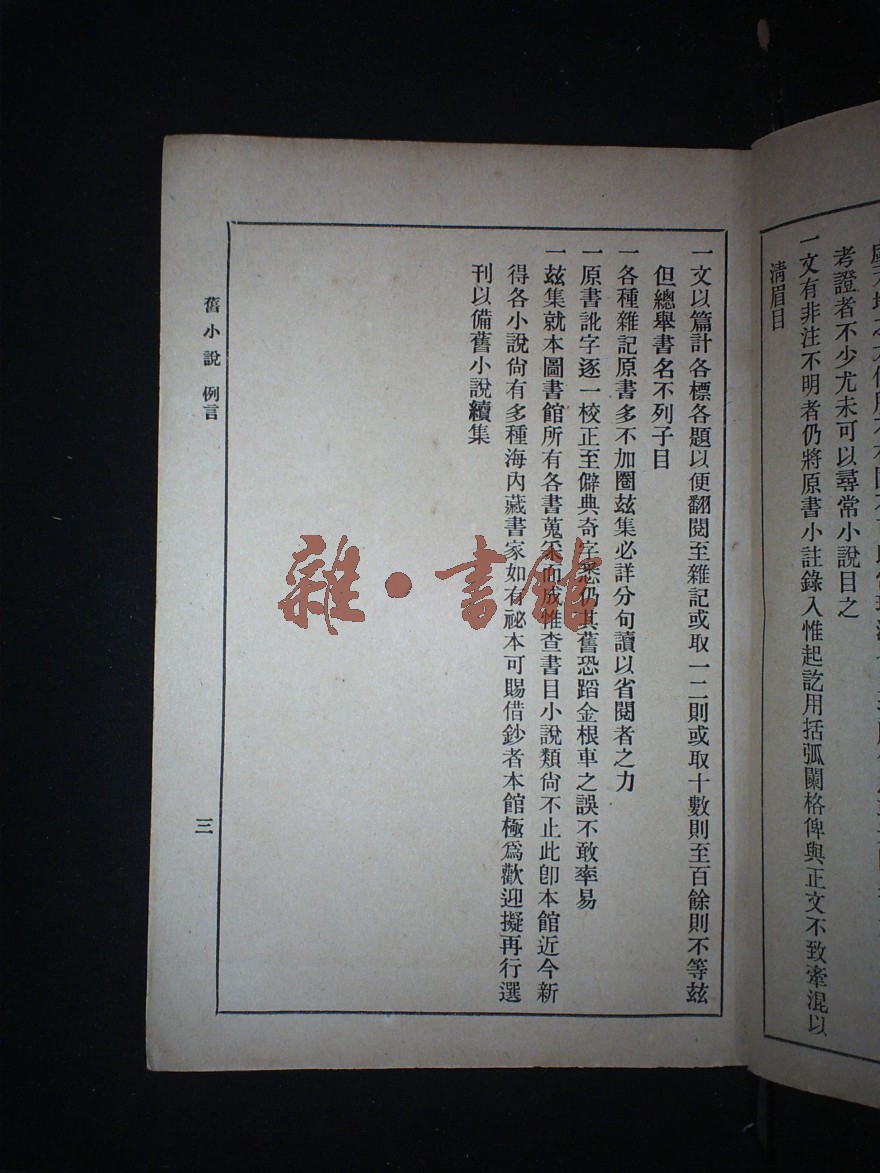 考證者不少尤未可以尋常小說目之
一文有非注不明者仍將原書小註錄入惟起訖用括弧闌格俾與正文不致牽混以
清眉目
一文以篇計各標各題以便翻閱至雜記或取一二則或取十數則至百餘則不等玆
但總舉書名不列子目
一各種雜記原書多不加圈玆集必詳分句讀以省閱者之力
一原書訛字逐一校正至僻典奇字悉仍其舊恐蹈金根車之誤不敢率易
一玆集就本圖書館所有各書蒐采而成惟查書目小說類尙不止此卽本館近今新
得各小說尙有多種海內藏書家如有祕本可賜借鈔者本館極爲歡迎擬再行選
刊以備舊小說續集
舊小說 例言
三
雜·書館